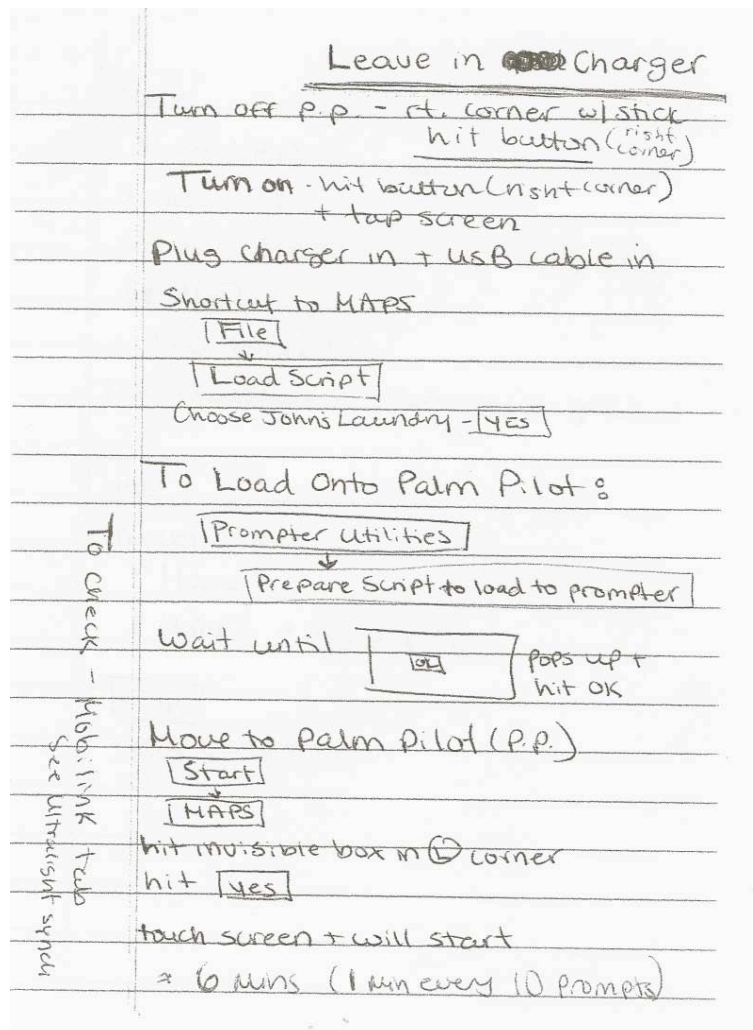 Leave in Charger
Turn off p.p. - rt. corner w/stick
hit button (right corner)
Turn on - hit button (right corner)
+ tap screen
Plug charger in + USB cable in
Shortcut to MAPS
File
Load Script
Choose John's Laundry - YES
To Load Onto Palm Pilot:
Prompter Utilities
Prepare Script to load to prompter
Wait until OK pops up +
hit OK
Move to Palm Pilot (P.P.)
Start
MAPS
hit invisible box in L corner
hit yes
touch screen + will start
≈ 6 mins (1 min every 10 prompts)
To check - Mobilink tab
See Ultralight synch